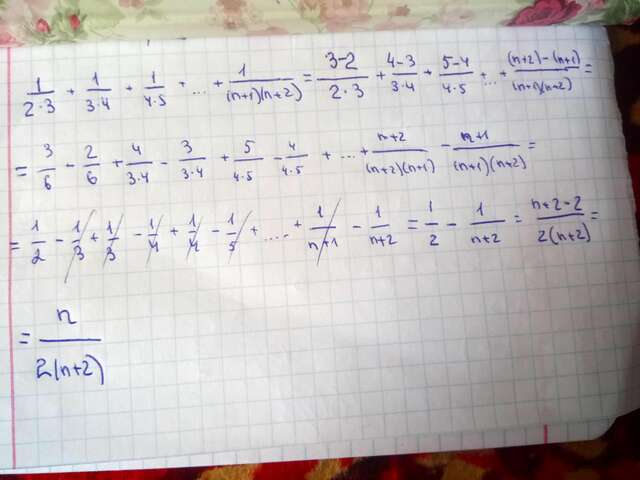 1/(2·3) + 1/(3·4) + 1/(4·5) + ... + 1/((n+1)(n+2)) = (3-2)/(2·3) + (4-3)/(3·4) + (5-4)/(4·5) + ... + ((n+2)-(n+1))/((n+1)(n+2)) =
= 3/6 - 2/6 + 4/(3·4) - 3/(3·4) + 5/(4·5) - 4/(4·5) + ... + (n+2)/((n+2)(n+1)) - (n+1)/((n+1)(n+2)) =
= 1/2 - 1/3 + 1/3 - 1/4 + 1/4 - 1/5 + ..... + 1/(n+1) - 1/(n+2) = 1/2 - 1/(n+2) = (n+2-2)/(2(n+2)) =
= n/(2(n+2))